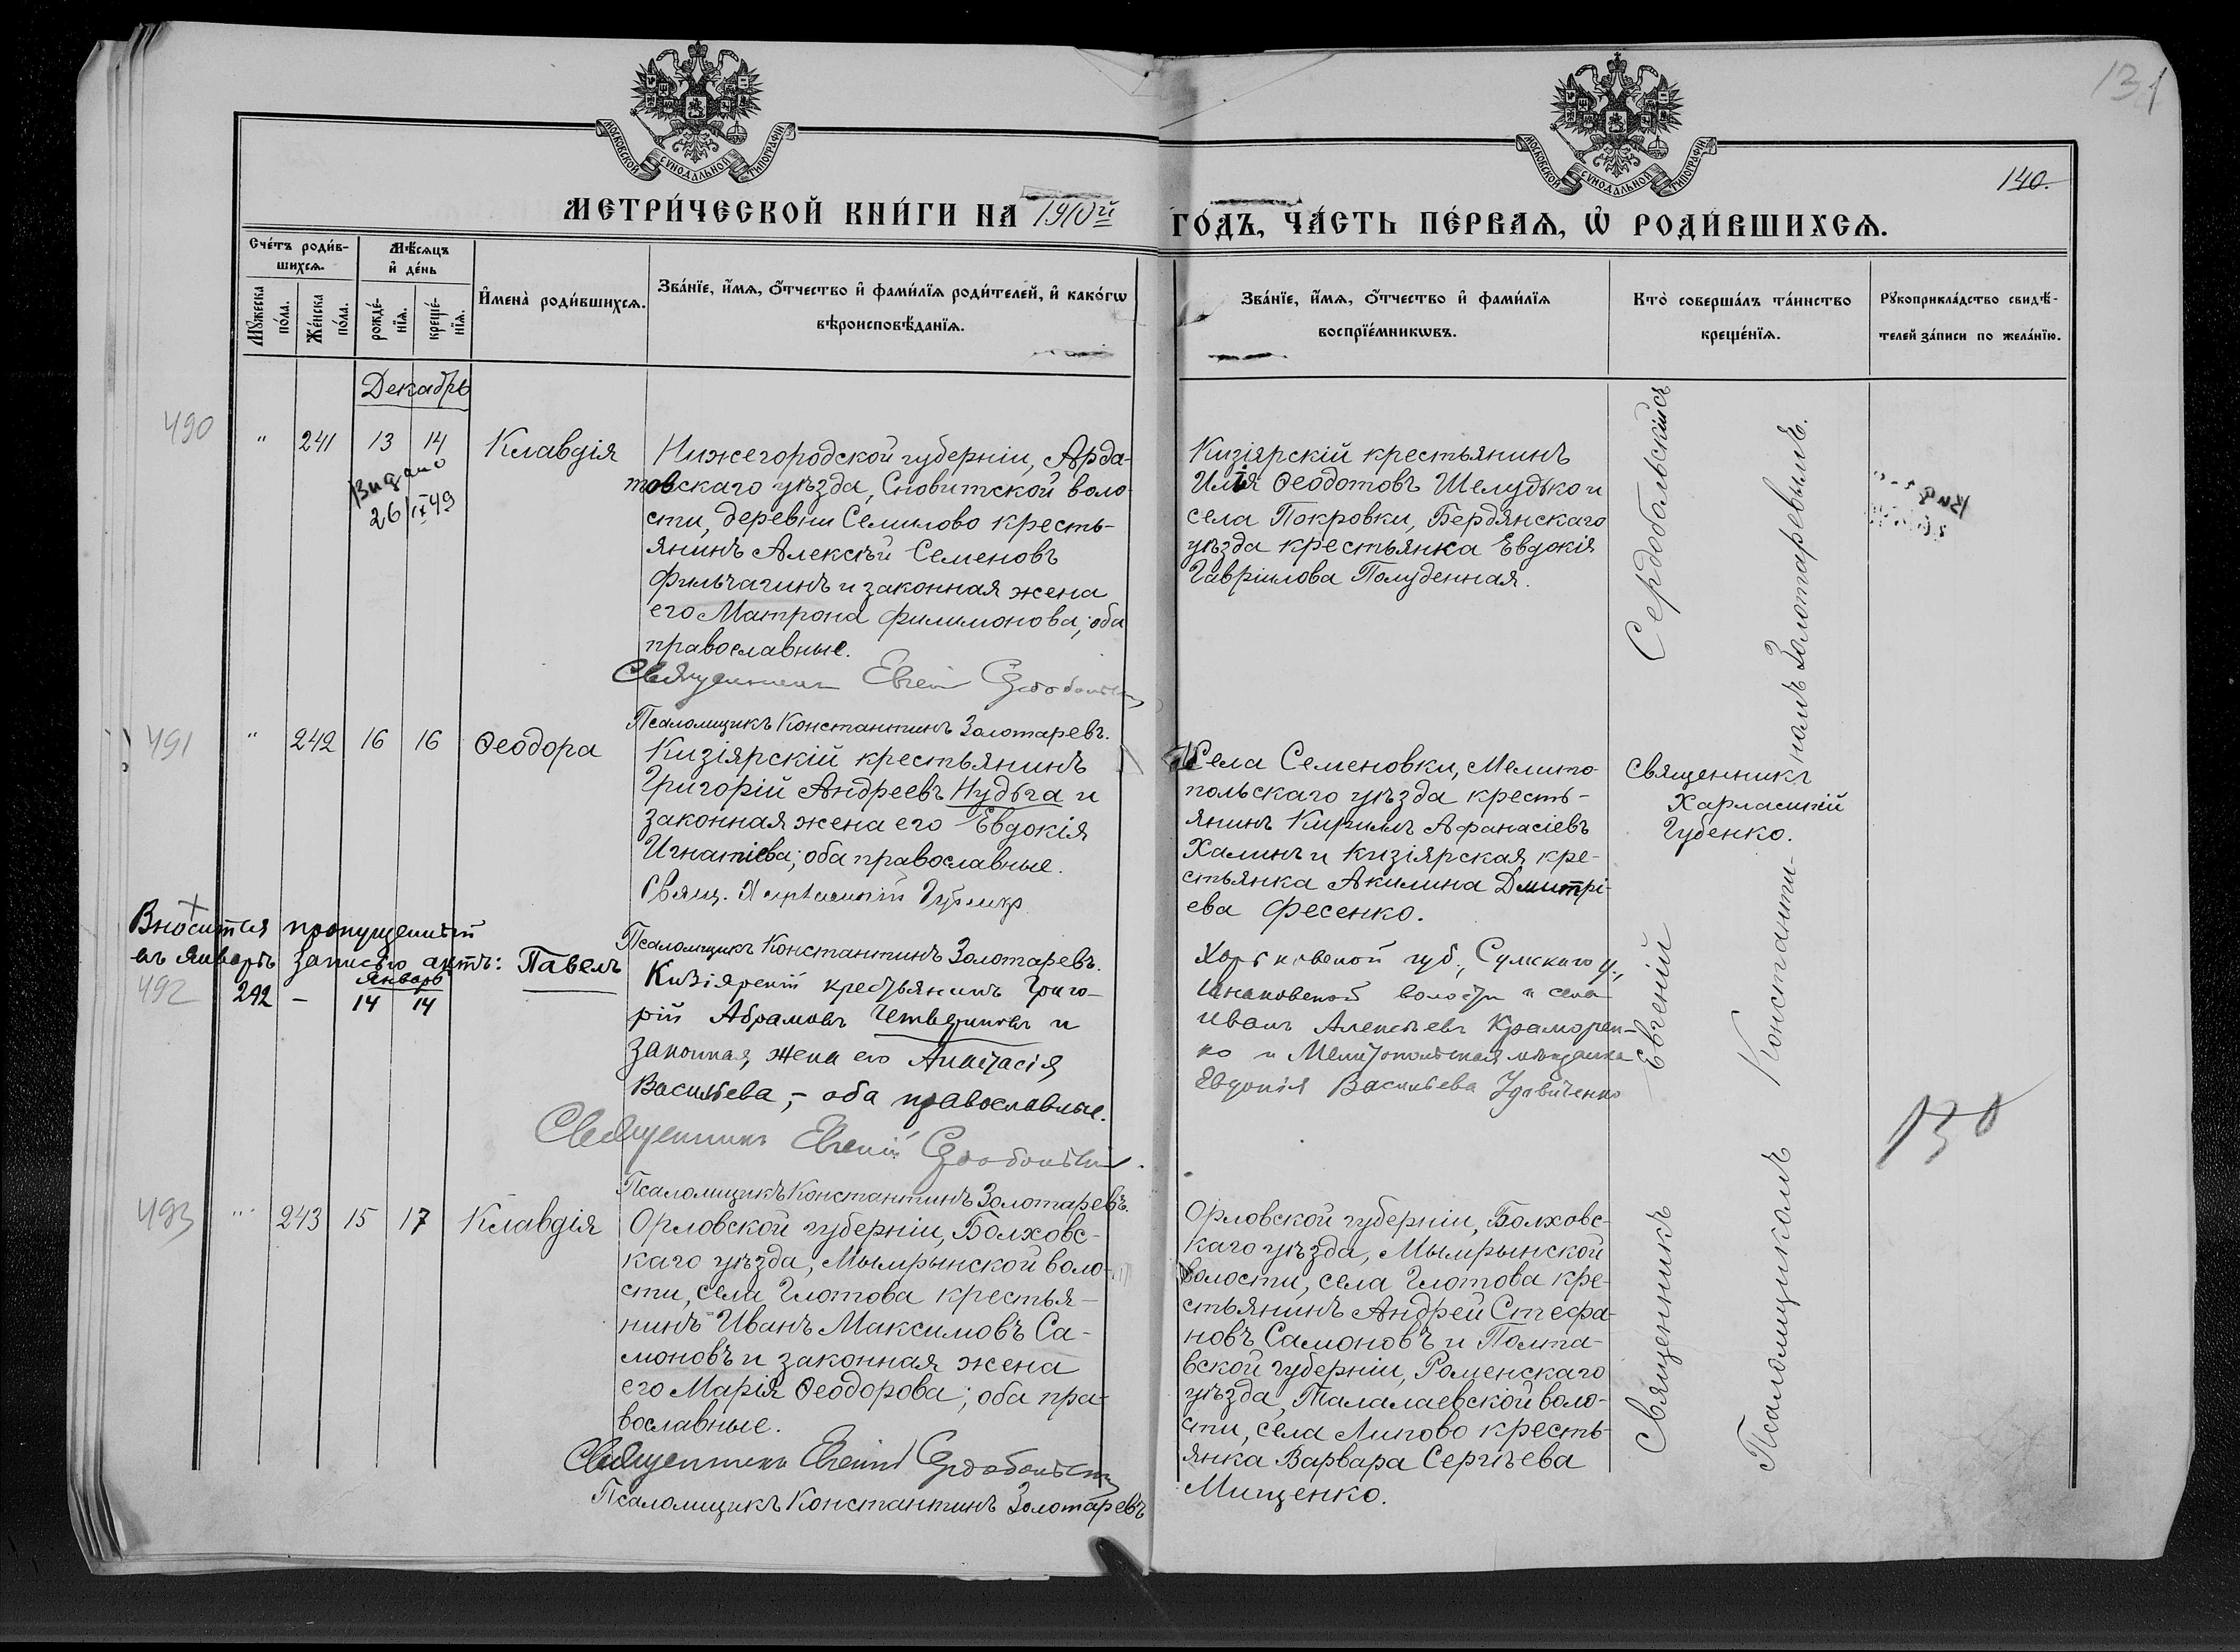 МОСКОВСКОЙ СѴНОДАЛЬНОЙ ТИПОГРАФІИ
МОСКОВСКОЙ СѴНОДАЛЬНОЙ ТИПОГРАФІИ
131
140.
МЕТРИ́ЧЕСКОЙ КНИ́ГИ НА 1910й ГО́ДЪ, ЧА́СТЬ ПЕ́РВАѦ, Ѡ҆ РОДИ́ВШИХСѦ.
Сче́тъ роди́в-
шихсѧ.
Мꙋ́жеска
по́ла.
Же́нска
по́ла.
Мѣ́сѧцъ
и҆ де́нь
рожде́-
нїѧ.
креще́-
нїѧ.
И҆мена̀ роди́вшихсѧ.
Зва́нїе, и҆́мѧ, ѻ҆́тчество и҆ фами́лїѧ роди́телей, и҆ како́гѡ
вѣроисповѣ́данїѧ.
Зва́нїе, и҆́мѧ, ѻ҆́тчество и҆ фами́лїѧ
воспрїе́мникѡвъ.
Кто̀ соверша́лъ та́инство
креще́нїѧ.
Рꙋкоприкла́дство свидѣ́-
телей за́писи по жела́нїю.
Декабрь
490
" 241 13 14 Клавдія
Видано
26/IX 49
Нижегородской губерніи, Арда-
товскаго уѣзда, Сновитской воло-
сти, деревни Семилово кресть-
янинъ Алексѣй Семеновъ
Фильчагинъ и законная жена
его Матрона Филимонова; оба
православные.
Священникъ Евгеній Сердобольскій
Псаломщикъ Константинъ Золотаревъ.
Кизіярскій крестьянинъ
Илія Ѳеодотовъ Шелудько и
села Покровки, Бердянскаго
уѣзда крестьянка Евдокія
Гавріилова Полуденная.
491
" 242 16 16 Ѳеодора
Кизіярскій крестьянинъ
Григорій Андреевъ Нудьга и
законная жена его Евдокія
Игнатіева; оба православные.
Свящ. Харлампій Губенко
Псаломщикъ Константинъ Золотаревъ.
Села Семеновки, Мелито-
польскаго уѣзда кресть-
янинъ Кириллъ Афанасіевъ
Халинъ и Кизіярская кре-
стьянка Акилина Дмитрі-
ева Фесенко.
Священникъ
Харлампій
Губенко.
Вносится пропущенный
въ Январѣ записью актъ: Павелъ
Январь
492
242 – 14 14
Кизіярскій крестьянинъ Григо-
рій Абрамовъ Четвериковъ и
законная жена его Анастасія
Васильева, – оба православные.
Священникъ Евгеній Сердобольскій.
Псаломщикъ Константинъ Золотаревъ.
Харьковской губ., Сумскаго у.,
волости и села
Иванъ Алексѣевъ Краморен-
ко и Мелитопольская мѣщанка
Евдокія Васильева Удовиченко
130
493
" 243 15 17 Клавдія
Орловской губерніи, Болховс-
каго уѣзда, Мымрынской воло-
сти, села Глотова крестья-
нинъ Иванъ Максимовъ Са-
моновъ и законная жена
его Марія Ѳеодорова; оба пра-
вославные.
Священникъ Евгеній Сердобольскій
Псаломщикъ Константинъ Золотаревъ
Орловской губерніи, Болховс-
каго уѣзда, Мымрынской
волости, села Глотова кре-
стьянинъ Андрей Стефа-
новъ Самоновъ и Полта-
вской губерніи, Роменскаго
уѣзда, Талалаевской воло-
сти, села Липово кресть-
янка Варвара Сергѣева
Мищенко.
Священникъ Евгеній Сердобольскій съ
Псаломщикомъ Константи-
номъ Золотаревымъ.